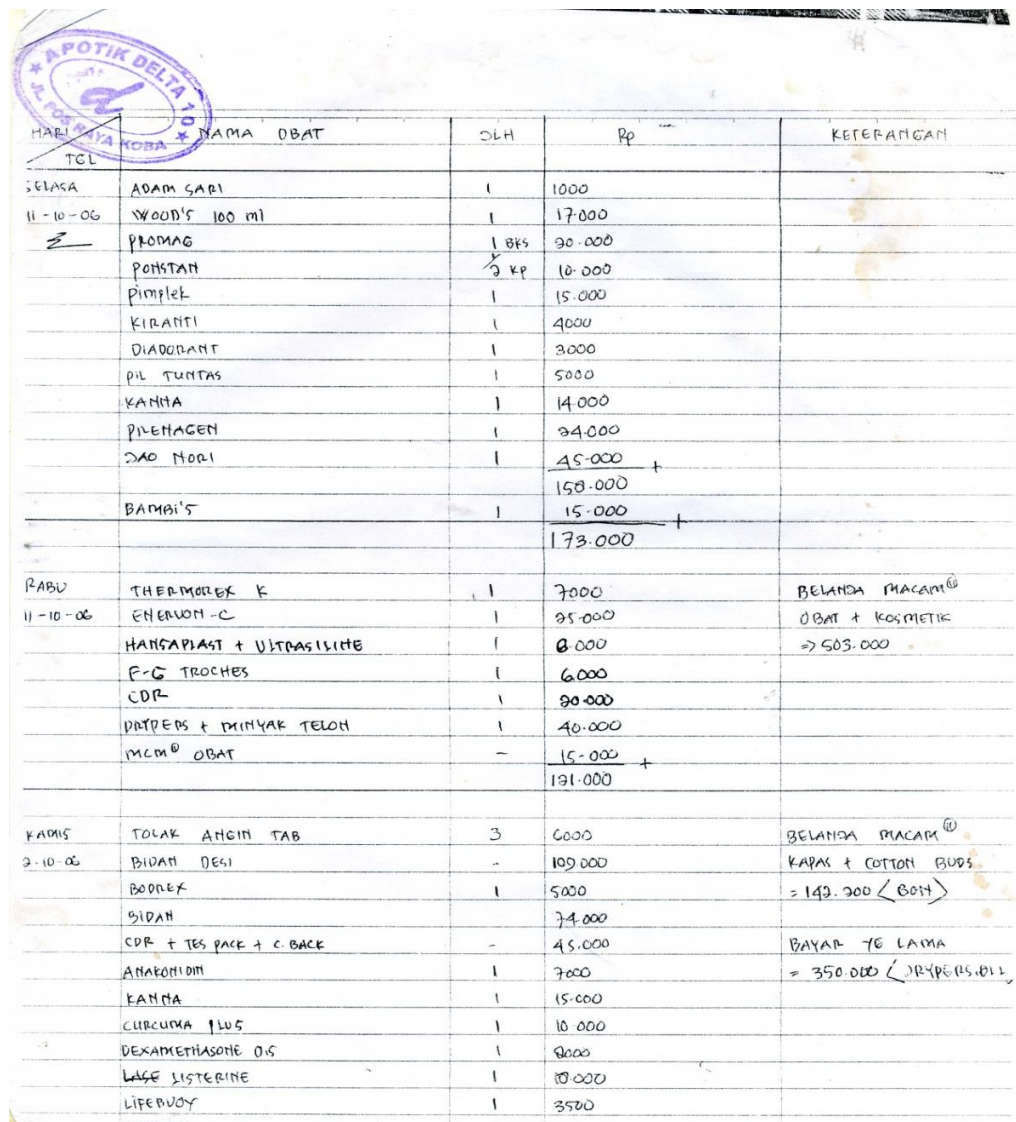 APOTIK DELTA 10
JL. POS RAYA KOBA
HARI NAMA OBAT JLH Rp KETERANGAN
TGL
SELASA ADAM SARI 1 1000
11-10-06 WOOD'S 100 ml 1 17.000
PROMAG 1 BKS 20.000
PONSTAN 1/2 KP 10.000
Pimplek 1 15.000
KIRANTI 1 4000
DIADORANT 1 3000
PIL TUNTAS 1 5000
KANNA 1 14.000
PRENAGEN 1 24.000
JAO NORI 1 45.000 +
158.000
BAMBI'S 1 15.000 +
173.000
RABU THERMOREX K 1 7000 BELANJA MACAM @
11-10-06 ENERVON-C 1 25.000 OBAT + KOSMETIK
HANSAPLAST + ULTRASILINE 1 8.000 => 503.000
F-G TROCHES 1 6.000
CDR 1 20.000
DRYPERS + MINYAK TELON 1 40.000
MCM@ OBAT - 15.000 +
121.000
KAMIS TOLAK ANGIN TAB 3 6000 BELANJA MACAM @
2-10-06 BIDAN DESI - 109.000 KAPAS + COTTON BUDS
BODREX 1 5000 = 142.200 (BON)
BIDAN 74.000
CDR + TES PACK + C. BACK - 45.000 BAYAR YG LAMA
ANAKONIDIN 1 7000 = 350.000 (DRYPERS, DLL
KANNA 1 15.000
CURCUMA PLUS 1 10.000
DEXAMETHASONE 0.5 1 2000
LISTERINE 1
LIFEBUOY 1 3500